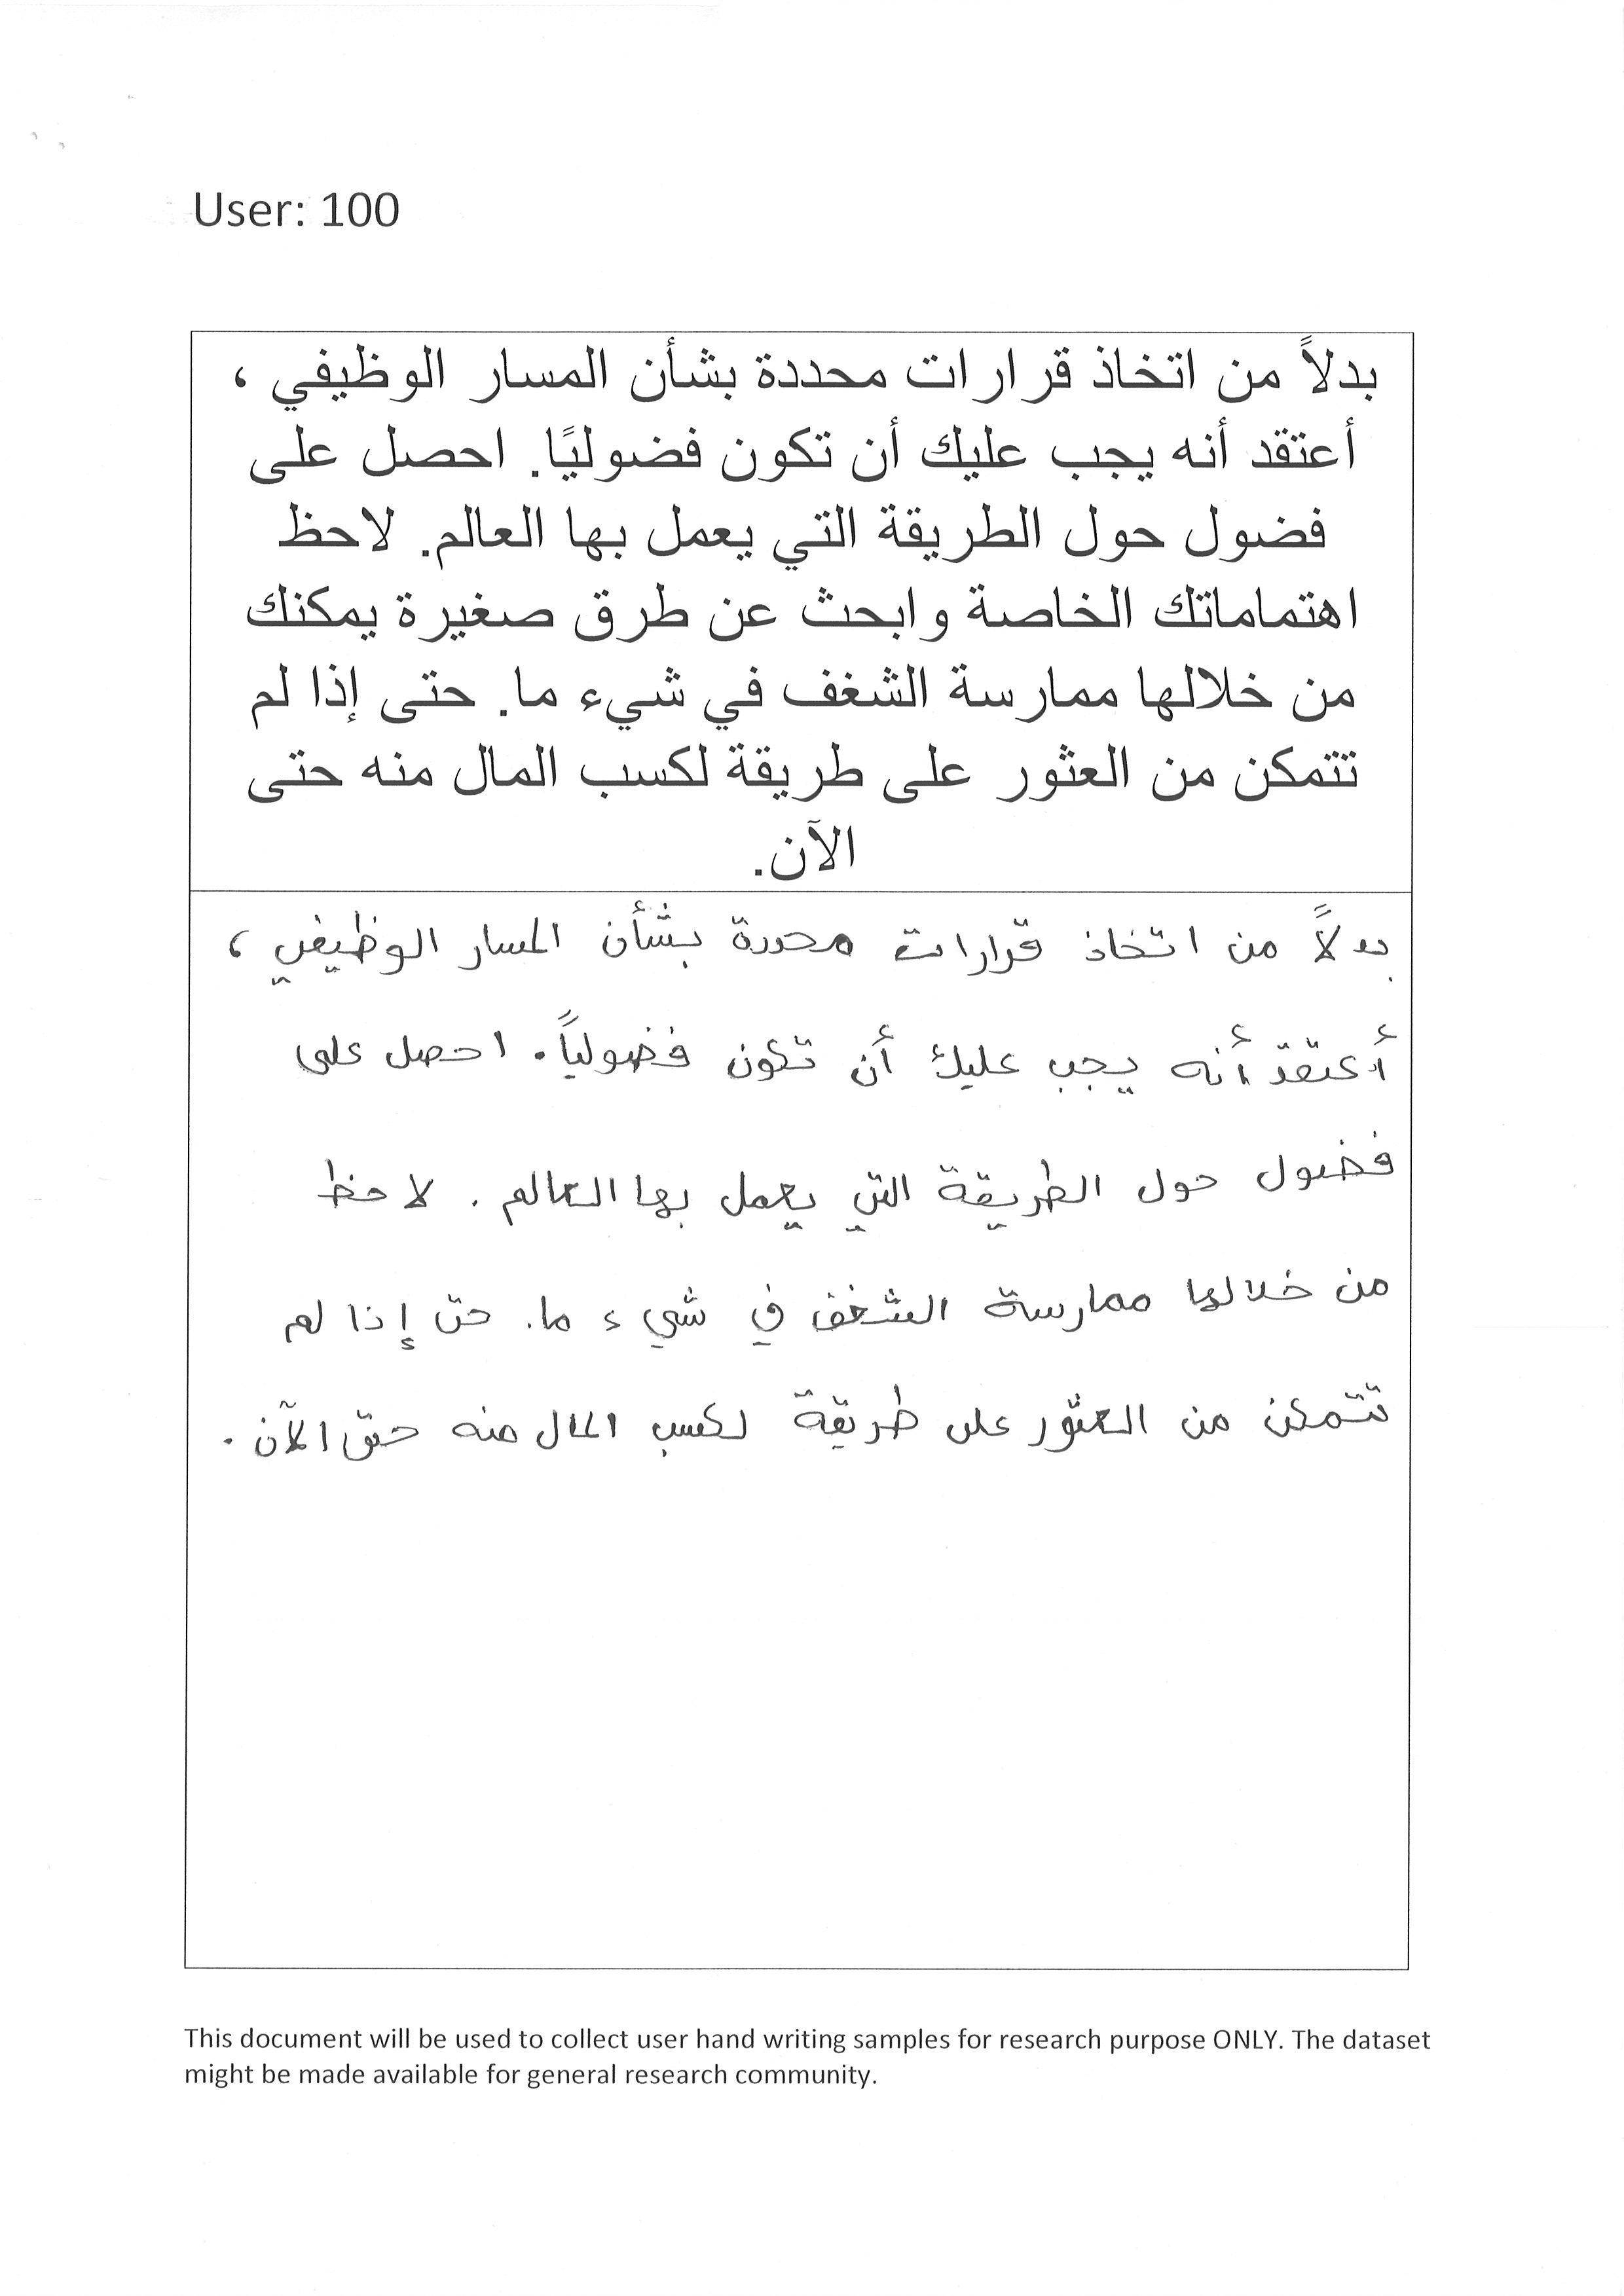 User: 100
بدلاً من اتخاذ قرارات محددة بشأن المسار الوظيفي ،
أعتقد أنه يجب عليك أن تكون فضوليًا. احصل على
فضول حول الطريقة التي يعمل بها العالم. لاحظ
اهتماماتك الخاصة وابحث عن طرق صغيرة يمكنك
من خلالها ممارسة الشغف في شيء ما. حتى إذا لم
تتمكن من العثور على طريقة لكسب المال منه حتى
الآن.
بدلاً من اتخاذ قرارات محددة بشأن المسار الوظيفي ،
أعتقد أنه يجب عليك أن تكون فضولياً. احصل على
فضول حول الطريقة التي يعمل بها العالم. لاحظ
من خلالها ممارسة الشغف في شيء ما. حتى إذا لم
تتمكن من العثور على طريقة لكسب المال منه حتى الآن.
This document will be used to collect user hand writing samples for research purpose ONLY. The dataset
might be made available for general research community.